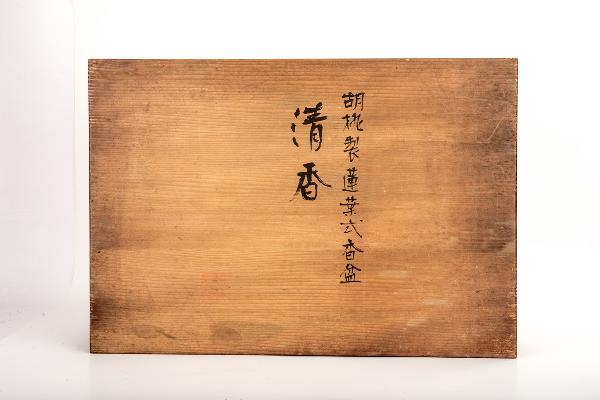 胡桃製蓮葉式香盆
清香